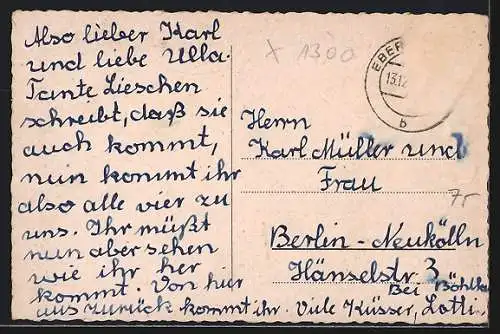 Also lieber Karl
und liebe Ulla.
Tante Lieschen
schreibt, daß sie
auch kommt,
nun kommt ihr
also alle vier zu
uns. Ihr müßt
nun aber sehen
wie ihr her
kommt. Von hier
aus zurück kommt ihr. Viele Küsser, Lotti.
x 1300
EBER
13.12
b
Herrn
Karl Müller und
Frau
Berlin-Neukölln
Hänselstr. 3
Bei